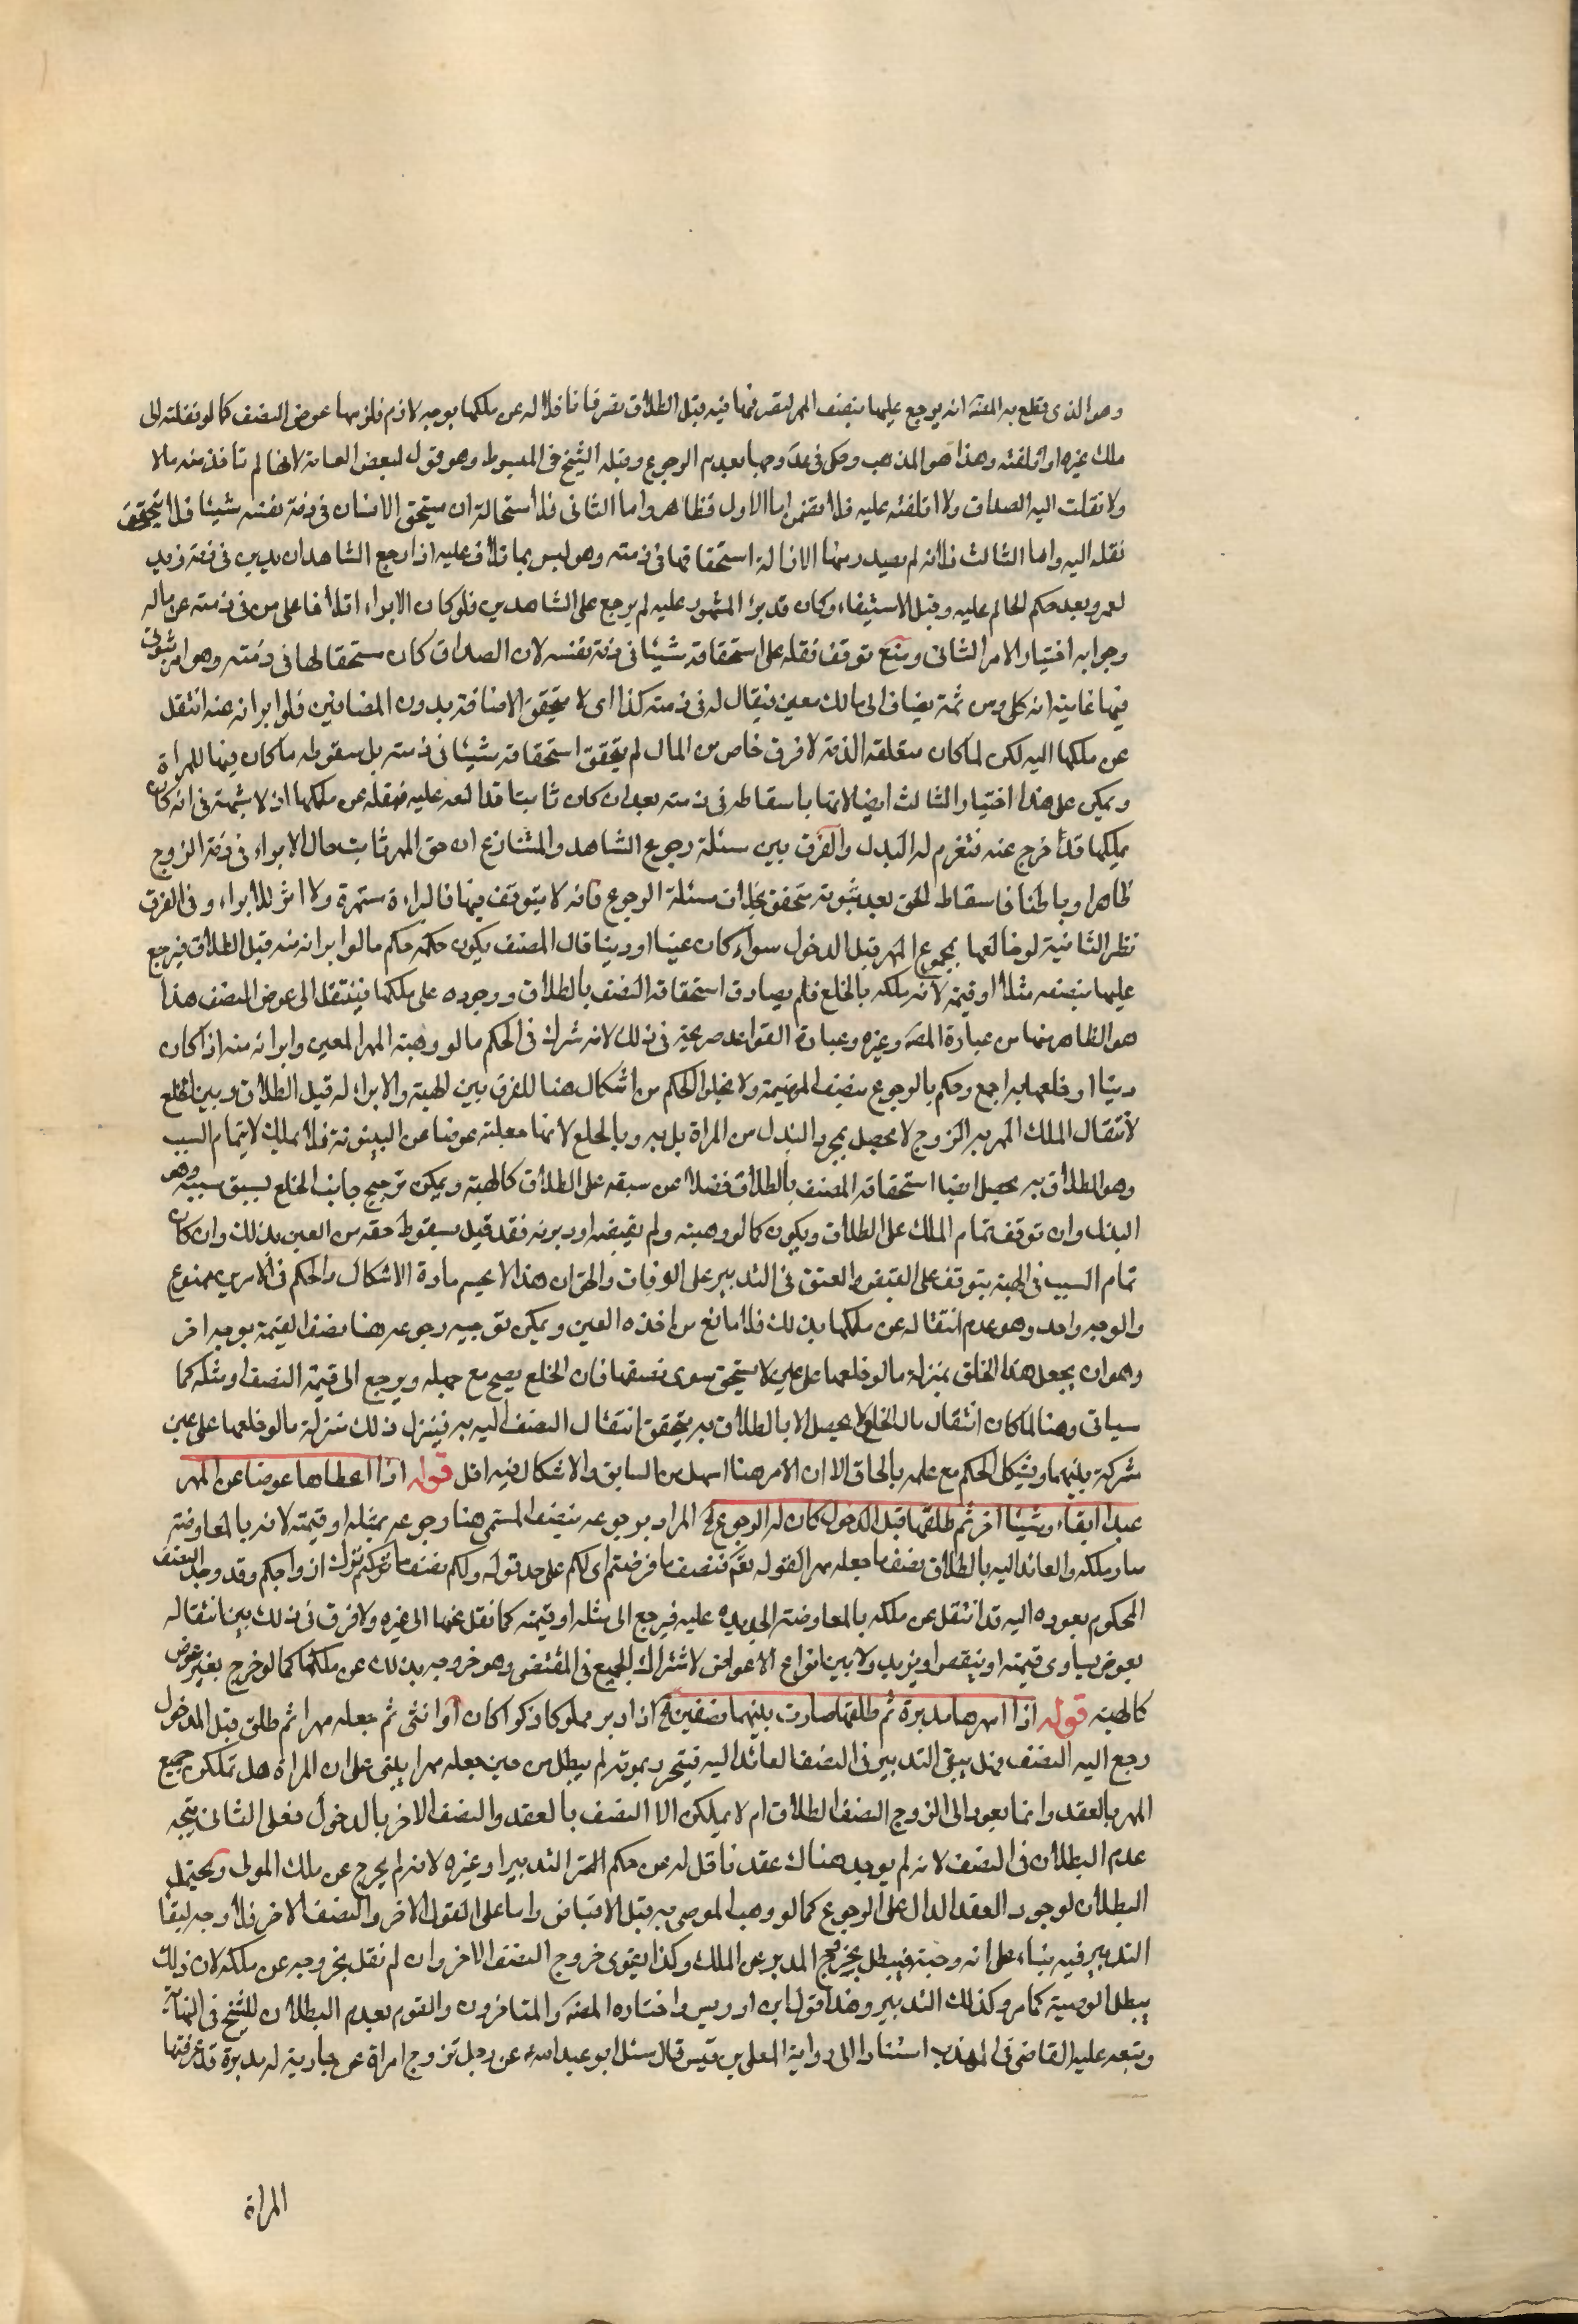 وهو الذى قطع به المصنف انه يرجع عليها بنصف المهر لتصرفها فيه قبل الطلاق تصرفا ناقلا له عن ملكها بوجه لازم فلزمها عوض النصف كما لو نقلته الى
ملك غيره او اتلفته وهذا هو المذهب وحكى فى عد وجها بعدم الرجوع وقبله الشيخ فى المبسوط وهو قول لبعض العامة لانها لم تاخذ منه مالا
ولا نقلت اليه الصداق ولا اتلفته عليه فلا تضمن اما الاول فظاهر واما الثانى فلاستحالة ان يستحق الانسان فى ذمة نفسه شيئا فلا يتحقق
نقله اليه واما الثالث فلانه لم يصدر منها الا ازالة استحقاقها فى ذمته وهو ليس باتلاف عليه اذا رجع الشاهدان بدين فى ذمة زيد
لعمرو بعد حكم الحاكم عليه وقبل الاستيفاء وكان قد برئ المشهود عليه لم يرجع على الشاهدين فلو كان الابراء اتلافا على من فى ذمته غرما له
وجوابه اختيار الامر الثانى ومنع توقف نقله على استحقاقه شيئا فى ذمة نفسه لان الصداق كان مستحقا لها فى ذمته وهو امر ثبوتى
فيها غايته انه كلى ومن ثمة يضاف الى مالك معين فيقال له فى ذمته كذا اى لا يتحقق الاضافة بدون المضافين فلو ابراته منه انتقل
عن ملكها اليه لكن لما كان متعلقه الذمة لا فرق خاص من المال لم يتحقق استحقاقه شيئا فى ذمته بل سقوط ما كان فيها للمراة
ويمكن على هذا اختيار الثالث ايضا لانها باسقاطه فى ذمته بعد ان كان ثابتا قد اتلفه عليه فنقله عن ملكها اذ لا شبهة فى انه كان
يملكها قد اخرج عنه فتغرم له البدل والفرق بين مسئلة رجوع الشاهد والمتنازع ان حق المهر ثابت حال الابراء فى ذمة الزوج
ظاهرا وباطنا فاسقاط الحق بعد ثبوته متحقق بخلاف مسئلة الرجوع فانه لا يتوقف فيها فالبراءة مستمرة ولا اثر للابراء وفى الفرق
نظر الثانية لو خالعها بمجموع المهر قبل الدخول سواء كان عينا او دينا قال المصنف يكون حكمه حكم ما لو ابراته منه قبل الطلاق فيرجع
عليها بنصفه مثلا او قيمة لانه ملكه بالخلع فلم يصادف استحقاقه النصف بالطلاق ووجوده على ملكها فينتقل الى عوض النصف هذا
هو الظاهر منها من عبارة المصنف وغيره وعبارة القواعد صريحة فى ذلك لانه شرك فى الحكم ما لو وهبته المهر المعين وابراته منه اذا كان
دينا او خلعها به اجمع وحكم بالرجوع بنصف القيمة ولا يخلو الحكم من اشكال هنا للفرق بين الهبة والابراء له قبل الطلاق وبين الخلع
لانتقال الملك المهر به الزوج لا يحصل بمجرد البذل من المراة بل به وبالخلع لانها جعلته عوضا عن البينونة فلا يملك الا بتمام السبب
وهو الطلاق به يحصل ايضا استحقاقه النصف بالطلاق فضلا عن سبقه على الطلاق كالهبة ويمكن ترجيح جانب الخلع بسبق سببه وهو
البذل وان توقف تمام الملك على الطلاق ويكون كما لو وهبته ولم يقبضه او دبرته فقد قيل بسقوط حقه من العين بذلك وان كان
تمام السبب فى الهبة يتوقف على القبض والعتق فى التدبير على الوفات والحق ان هذا لا يحسم مادة الاشكال والحكم فى الامرين ممنوع
والوجه واحد وهو عدم انتقاله عن ملكها بذلك فلا مانع من اخذه العين ويمكن توجيه رجوعه هنا بنصف القيمة بوجه اخر
وهو ان يجعل هذا الخلع بمنزلة ما لو خلعها على عين لا يستحق سوى نصفها فان الخلع يصح مع جهله ويرجع الى قيمة النصف او مثله كما
سياتى وهنا لما كان انتقال مال الخلع لا يحصل الا بالطلاق به يتحقق انتقال النصف اليه به فينزل ذلك منزلة ما لو خلعها على عين
شركة بينهما ويشكل الحكم مع علمه بالحاق الا ان الامر هنا اسهل من السابق والاشكال فيه اقل قوله اذا اعطاها عوضا عن المهر
عبدا ابقاء وشيئا اخر ثم طلقها قبل الدخول كان له الرجوع الخ المراد برجوعه بنصف المسمى هنا رجوعه بمثله او قيمته لانه بالمعاوضة
صار ملكه والعائد اليه بالطلاق نصف ما جعله مهرا لقوله تعم فنصف ما فرضتم اى لكم على حد قوله ولكم نصف ما ترك ازواجكم وقد وجد النصف
المحكوم بعوده اليه قد انتقل عن ملكه بالمعاوضة الجديدة عليه فيرجع الى مثله او قيمته كما نقل عنها الى غيره ولا فرق فى ذلك بين انتقاله
بعوض يساوى قيمته او ينقص او يزيد ولا بين انواع الاعواض لاشتراك الجميع فى المقتضى وهو خروجه بذلك عن ملكها كما لو خرج بغير عوض
كالهبة قوله اذا امهرها مدبرة ثم طلقها صارت بينهما نصفين الخ اذا دبر مملوكا ذكرا كان او انثى ثم جعله مهرا ثم طلق قبل الدخول
رجع اليه النصف وهل يبقى التدبير فى النصف العائد اليه فيتحرر بموته لم يبطل من حين جعله مهرا يبنى على ان المراة هل تملك جميع
المهر بالعقد وانما يعود الى الزوج النصف بالطلاق ام لا يملك الا النصف بالعقد والنصف الاخر بالدخول فعلى الثانى يتجه
عدم البطلان فى النصف لانه لم يوجد هناك عقد ناقل له عن حكم التدبير او غيره لانه لم يخرج عن ملك المولى ويحتمل
البطلان لوجود العقد الدال على الرجوع كما لو وهب الموصى به قبل الاقباض واما على القول الاخر والنصف الاخر فلا وجه لبقا
التدبير فيه بناء على انه وصية فيبطل بخروج المدبر عن الملك وكذا يقوى خروج النصف الاخر وان لم نقل بخروجه عن ملكه لان ذلك
يبطل الوصية كما مر وكذلك التدبير وهذا قول ابن ادريس واختاره المصنف والمتاخرون والقوم بعدم البطلان للشيخ فى النهاية
وتبعه عليه القاضى فى المهذب استنادا الى رواية المعلى بن خنيس قال سئل ابو عبد الله ع عن رجل تزوج امراة على جارية له مدبرة قد عرفتها
المراة